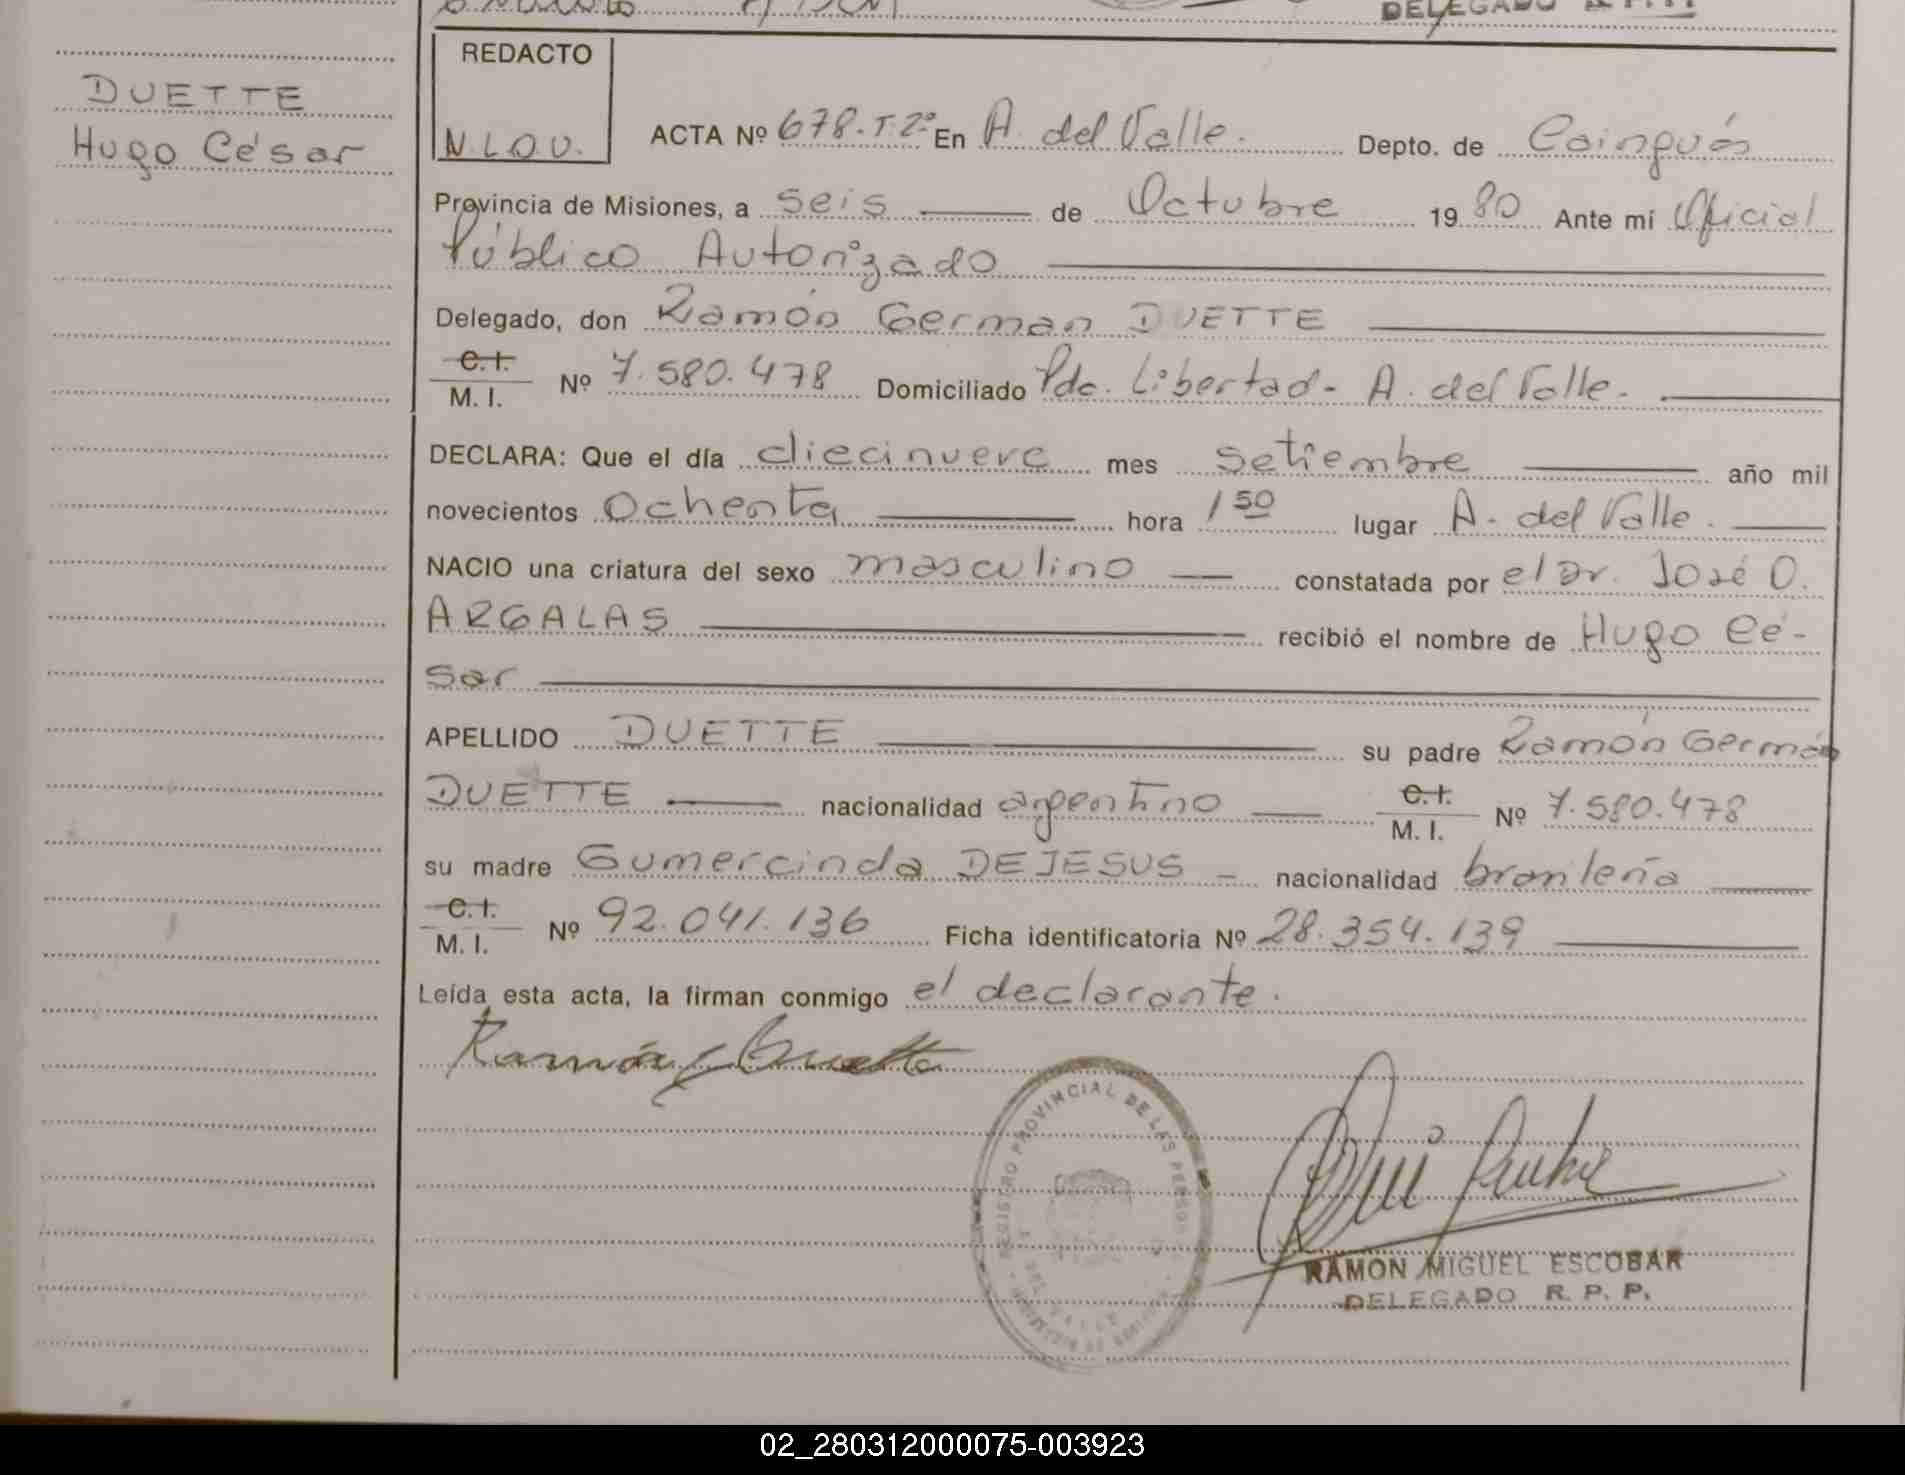 DELEGADO R.P.P.
DUETTE
Hugo César
REDACTO
N.L.O.V.
ACTA Nº 678.T.2º En A. del Valle. Depto. de Cainguás
Provincia de Misiones, a seis de Octubre 1980 Ante mí Oficial
Público Autorizado
Delegado, don Ramón German DUETTE
C.I. M.I. Nº 7.580.478 Domiciliado Pdo. Libertad - A. del Valle.
DECLARA: Que el día diecinueve mes setiembre año mil
novecientos ochenta hora 1 50 lugar A. del Valle.
NACIO una criatura del sexo masculino constatada por el Dr. José O.
ARGALAS recibió el nombre de Hugo Cé-
sar
APELLIDO DUETTE su padre Ramón Germán
DUETTE nacionalidad argentino C.I. M.I. Nº 7.580.478
su madre Gumercinda DE JESUS - nacionalidad brasileña
C.I. M.I. Nº 92.041.136 Ficha identificatoria Nº 28.354.139
Leída esta acta, la firman conmigo el declarante.
Ramón G Duette
REGISTRO PROVINCIAL DE LAS PERSONAS
RAMON MIGUEL ESCOBAR
DELEGADO R. P. P.
02_280312000075-003923